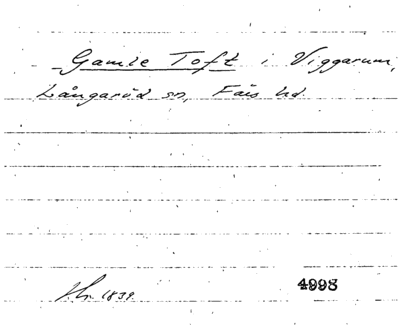 Gamle Toft i Viggarum,
Långaröd sn, Färs hd.
1839.
4998